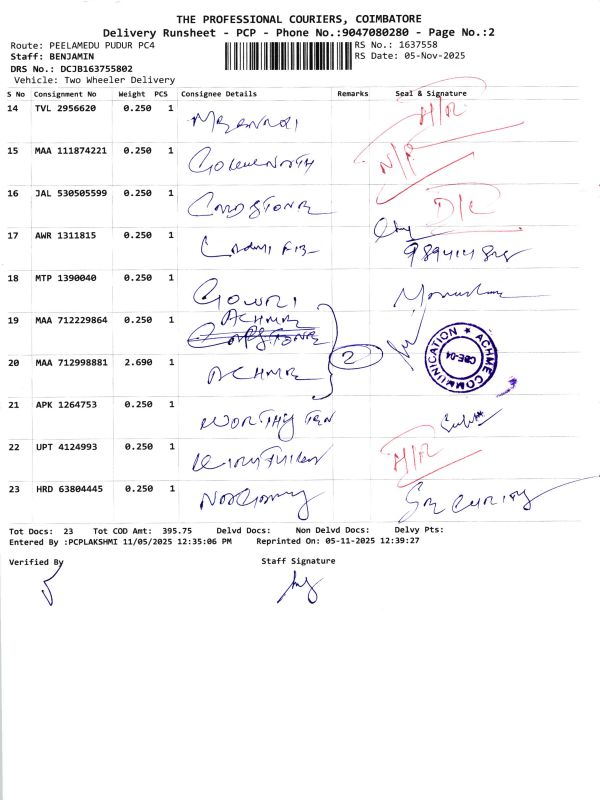 THE PROFESSIONAL COURIERS, COIMBATORE
Delivery Runsheet - PCP - Phone No.:9047080280 - Page No.:2
Route: PEELAMEDU PUDUR PC4 RS No.: 1637558
Staff: BENJAMIN RS Date: 05-Nov-2025
DRS No.: DCJB163755802
Vehicle: Two Wheeler Delivery
S No Consignment No Weight PCS Consignee Details Remarks Seal & Signature
14 TVL 2956620 0.250 1 H/R
15 MAA 111874221 0.250 1 N/R
16 JAL 530505599 0.250 1 D/L
17 AWR 1311815 0.250 1
18 MTP 1390040 0.250 1 GOWRI
19 MAA 712229864 0.250 1 ACHME
20 MAA 712998881 2.690 1 ACHME 2
ACHME COMMUNICATION ★ CBE-04
21 APK 1264753 0.250 1 WORTHY TEN
22 UPT 4124993 0.250 1 H/R
23 HRD 63804445 0.250 1 SECURITY
Tot Docs: 23 Tot COD Amt: 395.75 Delvd Docs: Non Delvd Docs: Delvy Pts:
Entered By :PCPLAKSHMI 11/05/2025 12:35:06 PM Reprinted On: 05-11-2025 12:39:27
Verified By Staff Signature